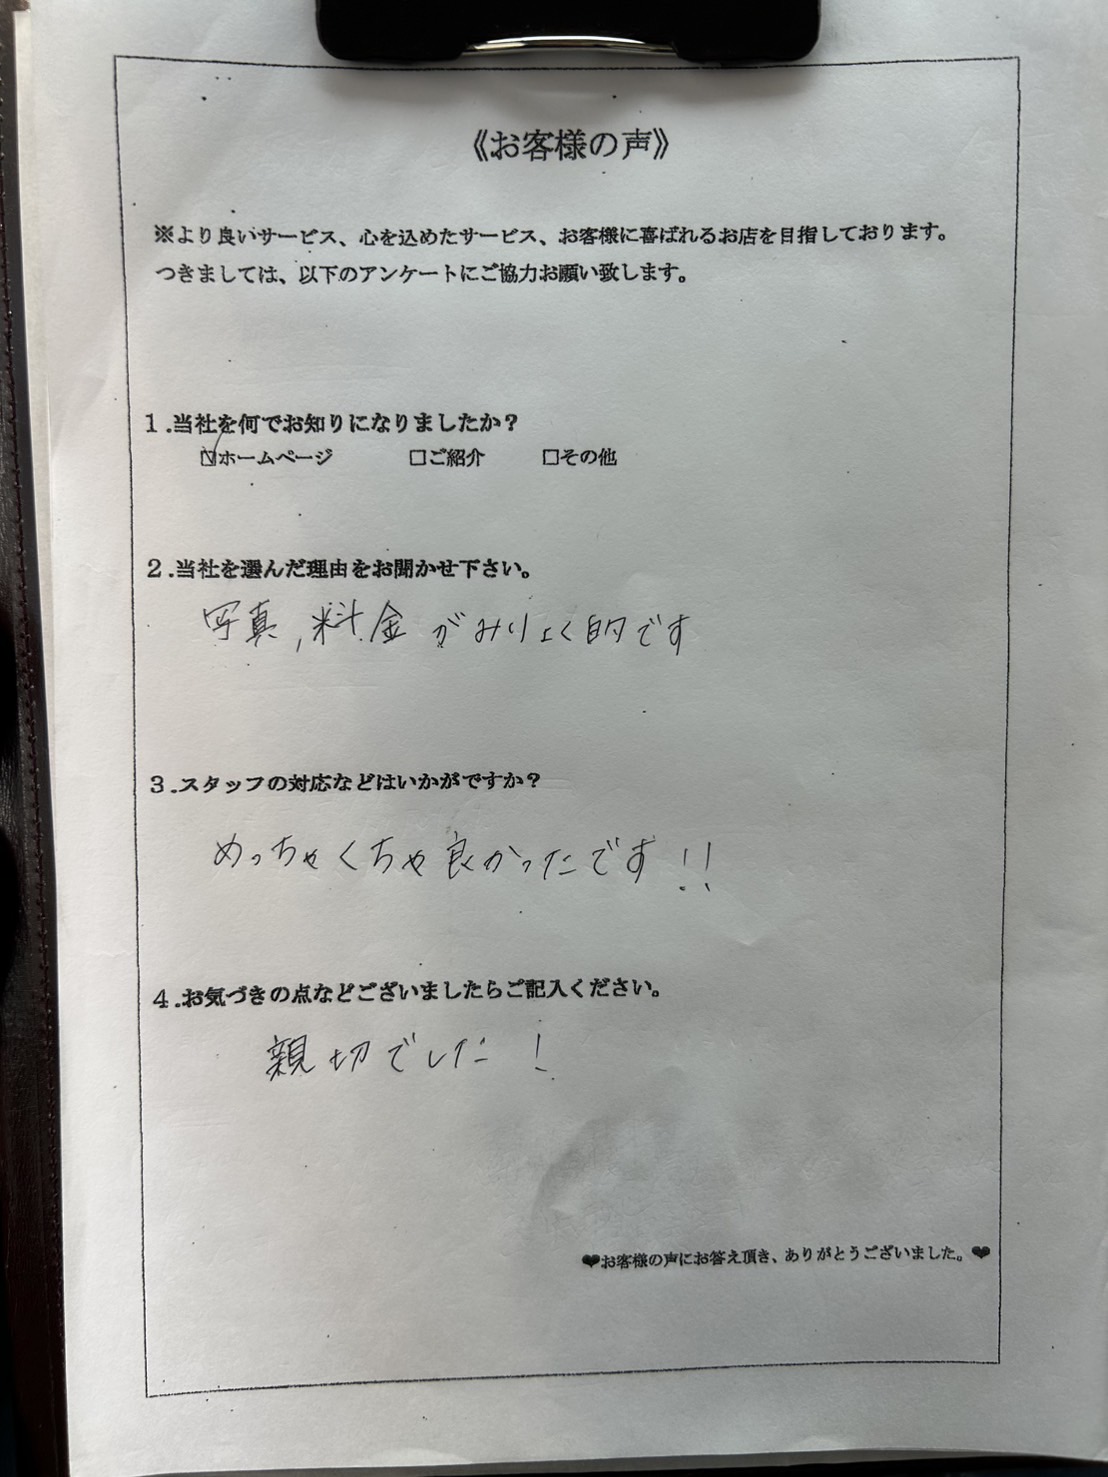 《お客様の声》
※より良いサービス、心を込めたサービス、お客様に喜ばれるお店を目指しております。
つきましては、以下のアンケートにご協力お願い致します。
1.当社を何でお知りになりましたか？
☑ホームページ　□ご紹介　□その他
2.当社を選んだ理由をお聞かせ下さい。
写真,料金がみりょく的です
3.スタッフの対応などはいかがですか？
めっちゃくちゃ良かったです!!
4.お気づきの点などございましたらご記入ください。
親切でした!
❤お客様の声にお答え頂き、ありがとうございました。❤